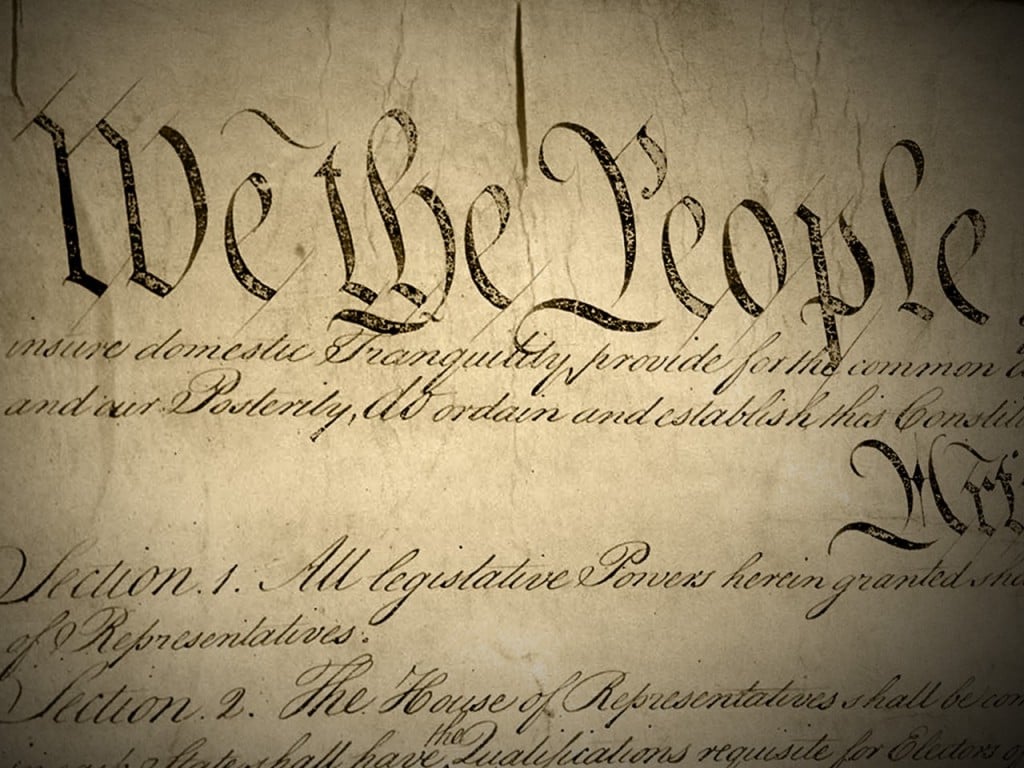 We the People
insure domestic Tranquility, provide for the common
and our Posterity, do ordain and establish this Constitu
Arti
Section. 1. All legislative Powers herein granted sha
of Representatives.
Section. 2. The House of Representatives shall be com
the
in each State shall have Qualifications requisite for Electors o